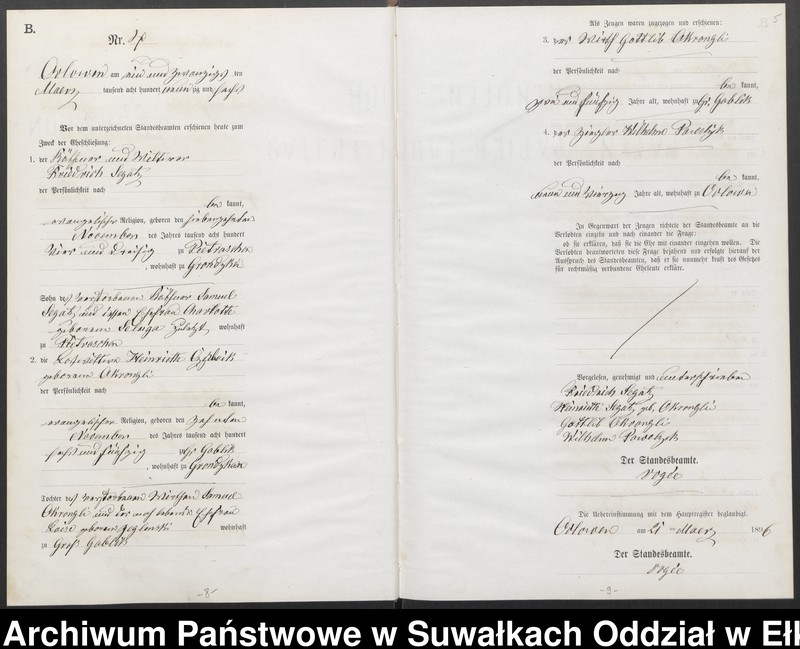 B.
Nr.
Orlowen am ein und zwanzigsten
Maerz tausend acht hundert neunzig und sechs
Vor dem unterzeichneten Standesbeamten erschienen heute zum
Zweck der Eheschließung:
1. der Käthner und Wittwer
Friedrich Segatz
der Persönlichkeit nach
be kannt,
evangelischer Religion, geboren den siebenzehnten
November des Jahres tausend acht hundert
vier und dreißig zu Pietraschen
, wohnhaft zu Grondzken
Sohn des verstorbenen Käthner Samuel
Segatz und dessen Ehefrau Charlotte
geborenen zuletzt wohnhaft
zu Pietraschen
2. die Henriette
geborene Okrongli
der Persönlichkeit nach
be kannt,
evangelischer Religion, geboren den zehnten
November des Jahres tausend acht hundert
sechs und fünfzig zu Gr. Gablick
, wohnhaft zu Grondzken
Tochter des verstorbenen Wirthen Samuel
Okrongli und der noch lebenden Ehefrau
Louise geborenen wohnhaft
zu Groß Gablick
-8-
5
Als Zeugen waren zugezogen und erschienen:
3. der Wirth Gottlib Okrongli
der Persönlichkeit nach
be kannt,
zwei und fünfzig Jahre alt, wohnhaft zu Gr. Gablick
4. der Ziegler Wilhelm
der Persönlichkeit nach
be kannt,
neun und vierzig Jahre alt, wohnhaft zu Orlowen
In Gegenwart der Zeugen richtete der Standesbeamte an die
Verlobten einzeln und nach einander die Frage:
ob sie erklären, daß sie die Ehe mit einander eingehen wollen. Die
Verlobten beantworteten diese Frage bejahend und erfolgte hierauf der
Ausspruch des Standesbeamten, daß er sie nunmehr kraft des Gesetzes
für rechtmäßig verbundene Eheleute erkläre.
Vorgelesen, genehmigt und unterschrieben
Friedrich Segatz
Henriette Segatz geb. Okrongli
Gottlib Okrongli
Wilhelm
Der Standesbeamte.
Die Uebereinstimmung mit dem Hauptregister beglaubigt.
Orlowen am 21 ten Maerz 1896
Der Standesbeamte.
-9-
Archiwum Państwowe w Suwałkach Oddział w Ełk